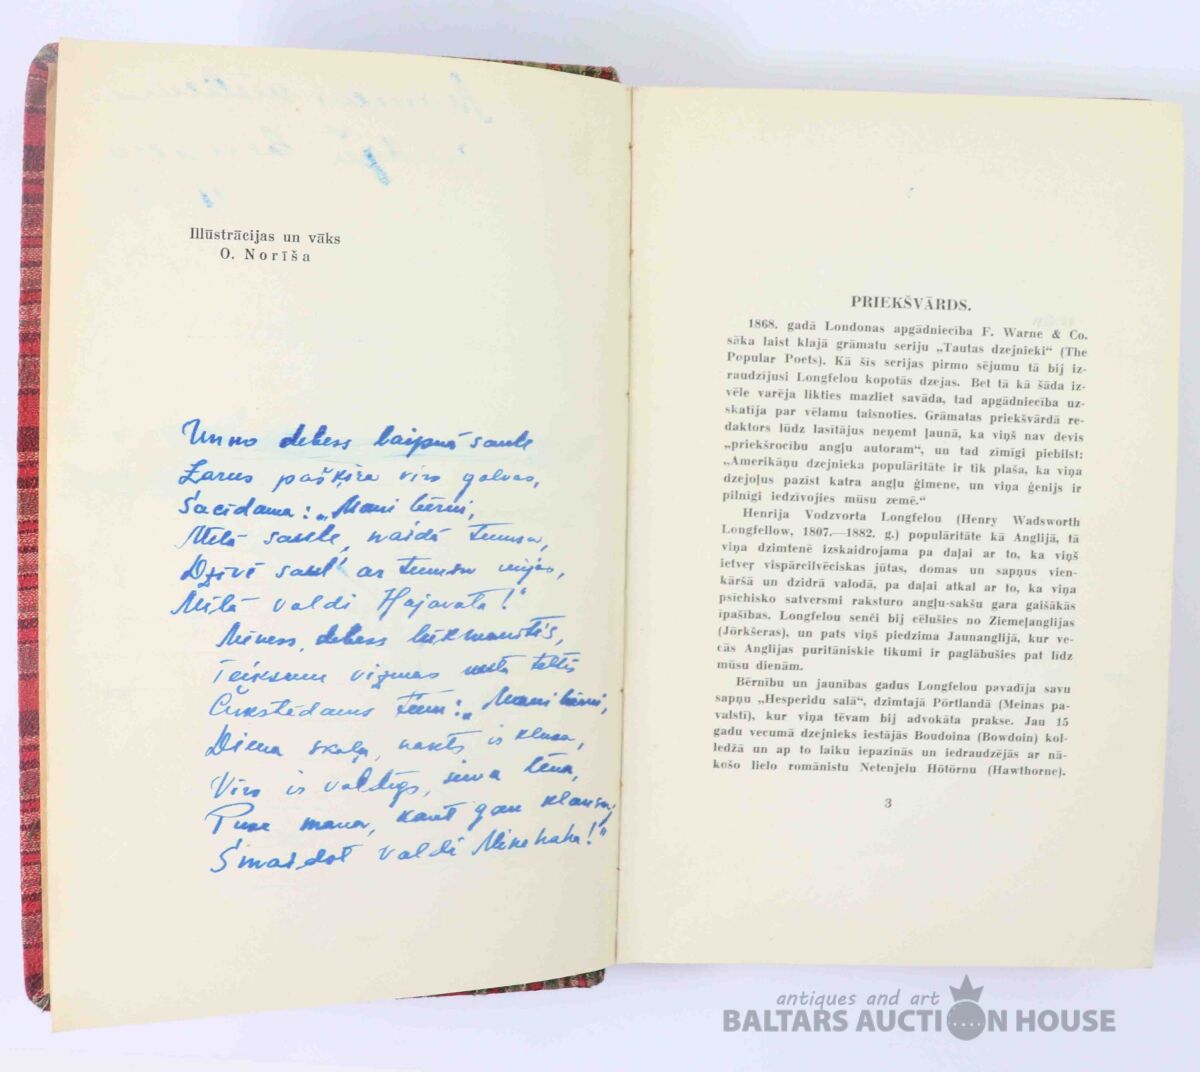 Illūstrācijas un vāks
O. Norīša
Un no debess laipnā saule
Zarus pašķīra virs galvas,
Sacīdama: „Mani bērni,
Mīlā saule, naidā tumsa,
Dzīvē saul' ar tumsu mijas,
Mīlā valdi Hajavata!"
Mēness, debess lūkmanītis,
Teiksmu vizmas tītis
Čukstēdams tiem: „Mani bērni,
Diena skaļa, nakts is klusa,
Vīrs is valdīgs, sieva lēna,
Puse mana, kaut gan klausu,
Smaidot valdi Minehaha!"
PRIEKŠVĀRDS.
1868. gadā Londonas apgādniecība F. Warne & Co.
sāka laist klajā grāmatu seriju „Tautas dzejnieki“ (The
Popular Poets). Kā šīs serijas pirmo sējumu tā bij iz-
raudzījusi Longfelou kopotās dzejas. Bet tā kā šāda iz-
vēle varēja likties mazliet savāda, tad apgādniecība uz-
skatīja par vēlamu taisnoties. Grāmatas priekšvārdā re-
daktors lūdz lasītājus neņemt ļaunā, ka viņš nav devis
„priekšrocību angļu autoram“, un tad zīmīgi piebilst:
„Amerikāņu dzejnieka populāritāte ir tik plaša, ka viņa
dzejoļus pazīst katra angļu ģimene, un viņa ģenijs ir
pilnīgi iedzīvojies mūsu zemē.“
Henrija Vodzvorta Longfelou (Henry Wadsworth
Longfellow, 1807.—1882. g.) populāritāte kā Anglijā, tā
viņa dzimtenē izskaidrojama pa daļai ar to, ka viņš
ietver vispārcilvēciskas jūtas, domas un sapņus vien-
kāršā un dzidrā valodā, pa daļai atkal ar to, ka viņa
psīchisko satversmi raksturo angļu-sakšu gara gaišākās
īpašības. Longfelou senči bij cēlušies no Ziemeļanglijas
(Jörkšeras), un pats viņš piedzima Jaunanglijā, kur ve-
cās Anglijas puritāniskie tikumi ir paglābušies pat līdz
mūsu dienām.
Bērnību un jaunības gadus Longfelou pavadīja savu
sapņu „Hesperidu salā“, dzimtajā Pōrtlandā (Meinas pa-
valstī), kur viņa tēvam bij advokāta prakse. Jau 15
gadu vecumā dzejnieks iestājās Boudoina (Bowdoin) kol-
ledžā un ap to laiku iepazinās un iedraudzējās ar nā-
košo lielo romānistu Netenjelu Hōtōrnu (Hawthorne).
3
antiques and art
BALTARS AUCTION HOUSE